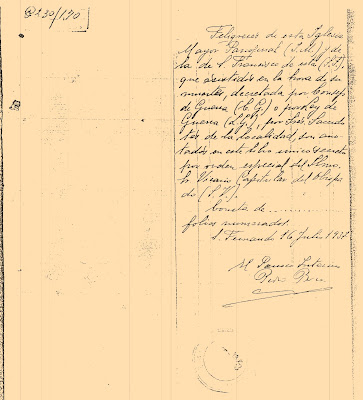 @130/190
Feligreses de esta Iglesia
Mayor Parroquial (I.M.) y de
la de S. Francisco de esta (S.F.)
que asistidos en la hora de su
muerte, decretada por Consejo
de Guerra (C.G.) o por Ley de
Guerra (L.G.), por los Sacerdo
tes de la localidad, son ano
tados en este libro único y secreto
por orden especial del Ilmo.
Sr. Vicario Capitular del Obispa
do (S.V.).
Consta de
folios numerados.
S. Fernando 16 Julio 1937
El Párroco Interino